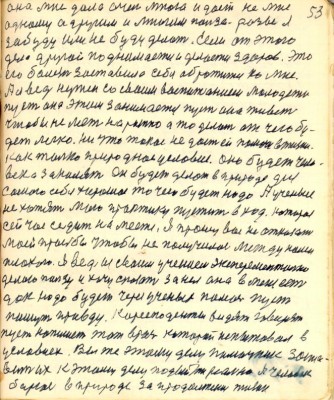 53
она мне дала очень много и даёт не мне
одному а другим и многим польза. разве я
забуду или не буду делать. Если от этого
дело другой поднимается и делается здоров. Это
его болезь заставила себя обратится ко мне.
А я вед нужен со своим воспитанием молодёжи
пуст она этим занимается пуст она живёт
чтобы не лет на ротко а то делат от чего бу-
дет легко. Ни что такое не даст помощ в жизни
как толко природное условие. Оно будет чело-
века занимат Он будет делат в природе для
самого себя хорошое то чего будет надо А учёные
не хотят мою практику пустит в ход. которая
сей час сидит на месте. Я прошу вас не отказат
моей просьбы чтобы не получилос между нами
плохого. Я вед и своим учением эксперементално
делаю ползу и хочу сказат за нея она в
даю надо будет через ученых помощ пуст
пишут правду. Коресподенты видят говорят
пуст напишет тот врач которой испытовал в
условиях. Вы же этому делу помощник
к этому делу подойти реално я человек
борюс в природе за продолжения жизни